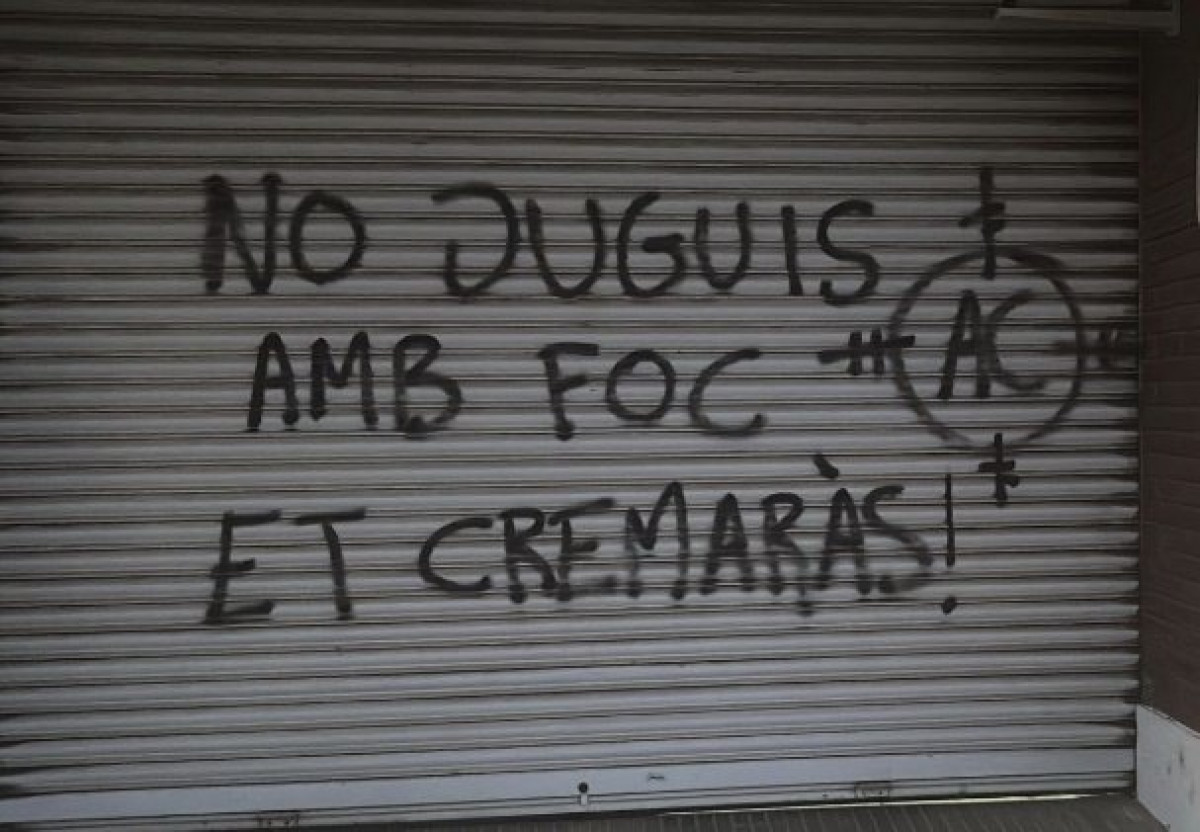 NO JUGUIS
AMB FOC
AC
ET CREMARÀS!